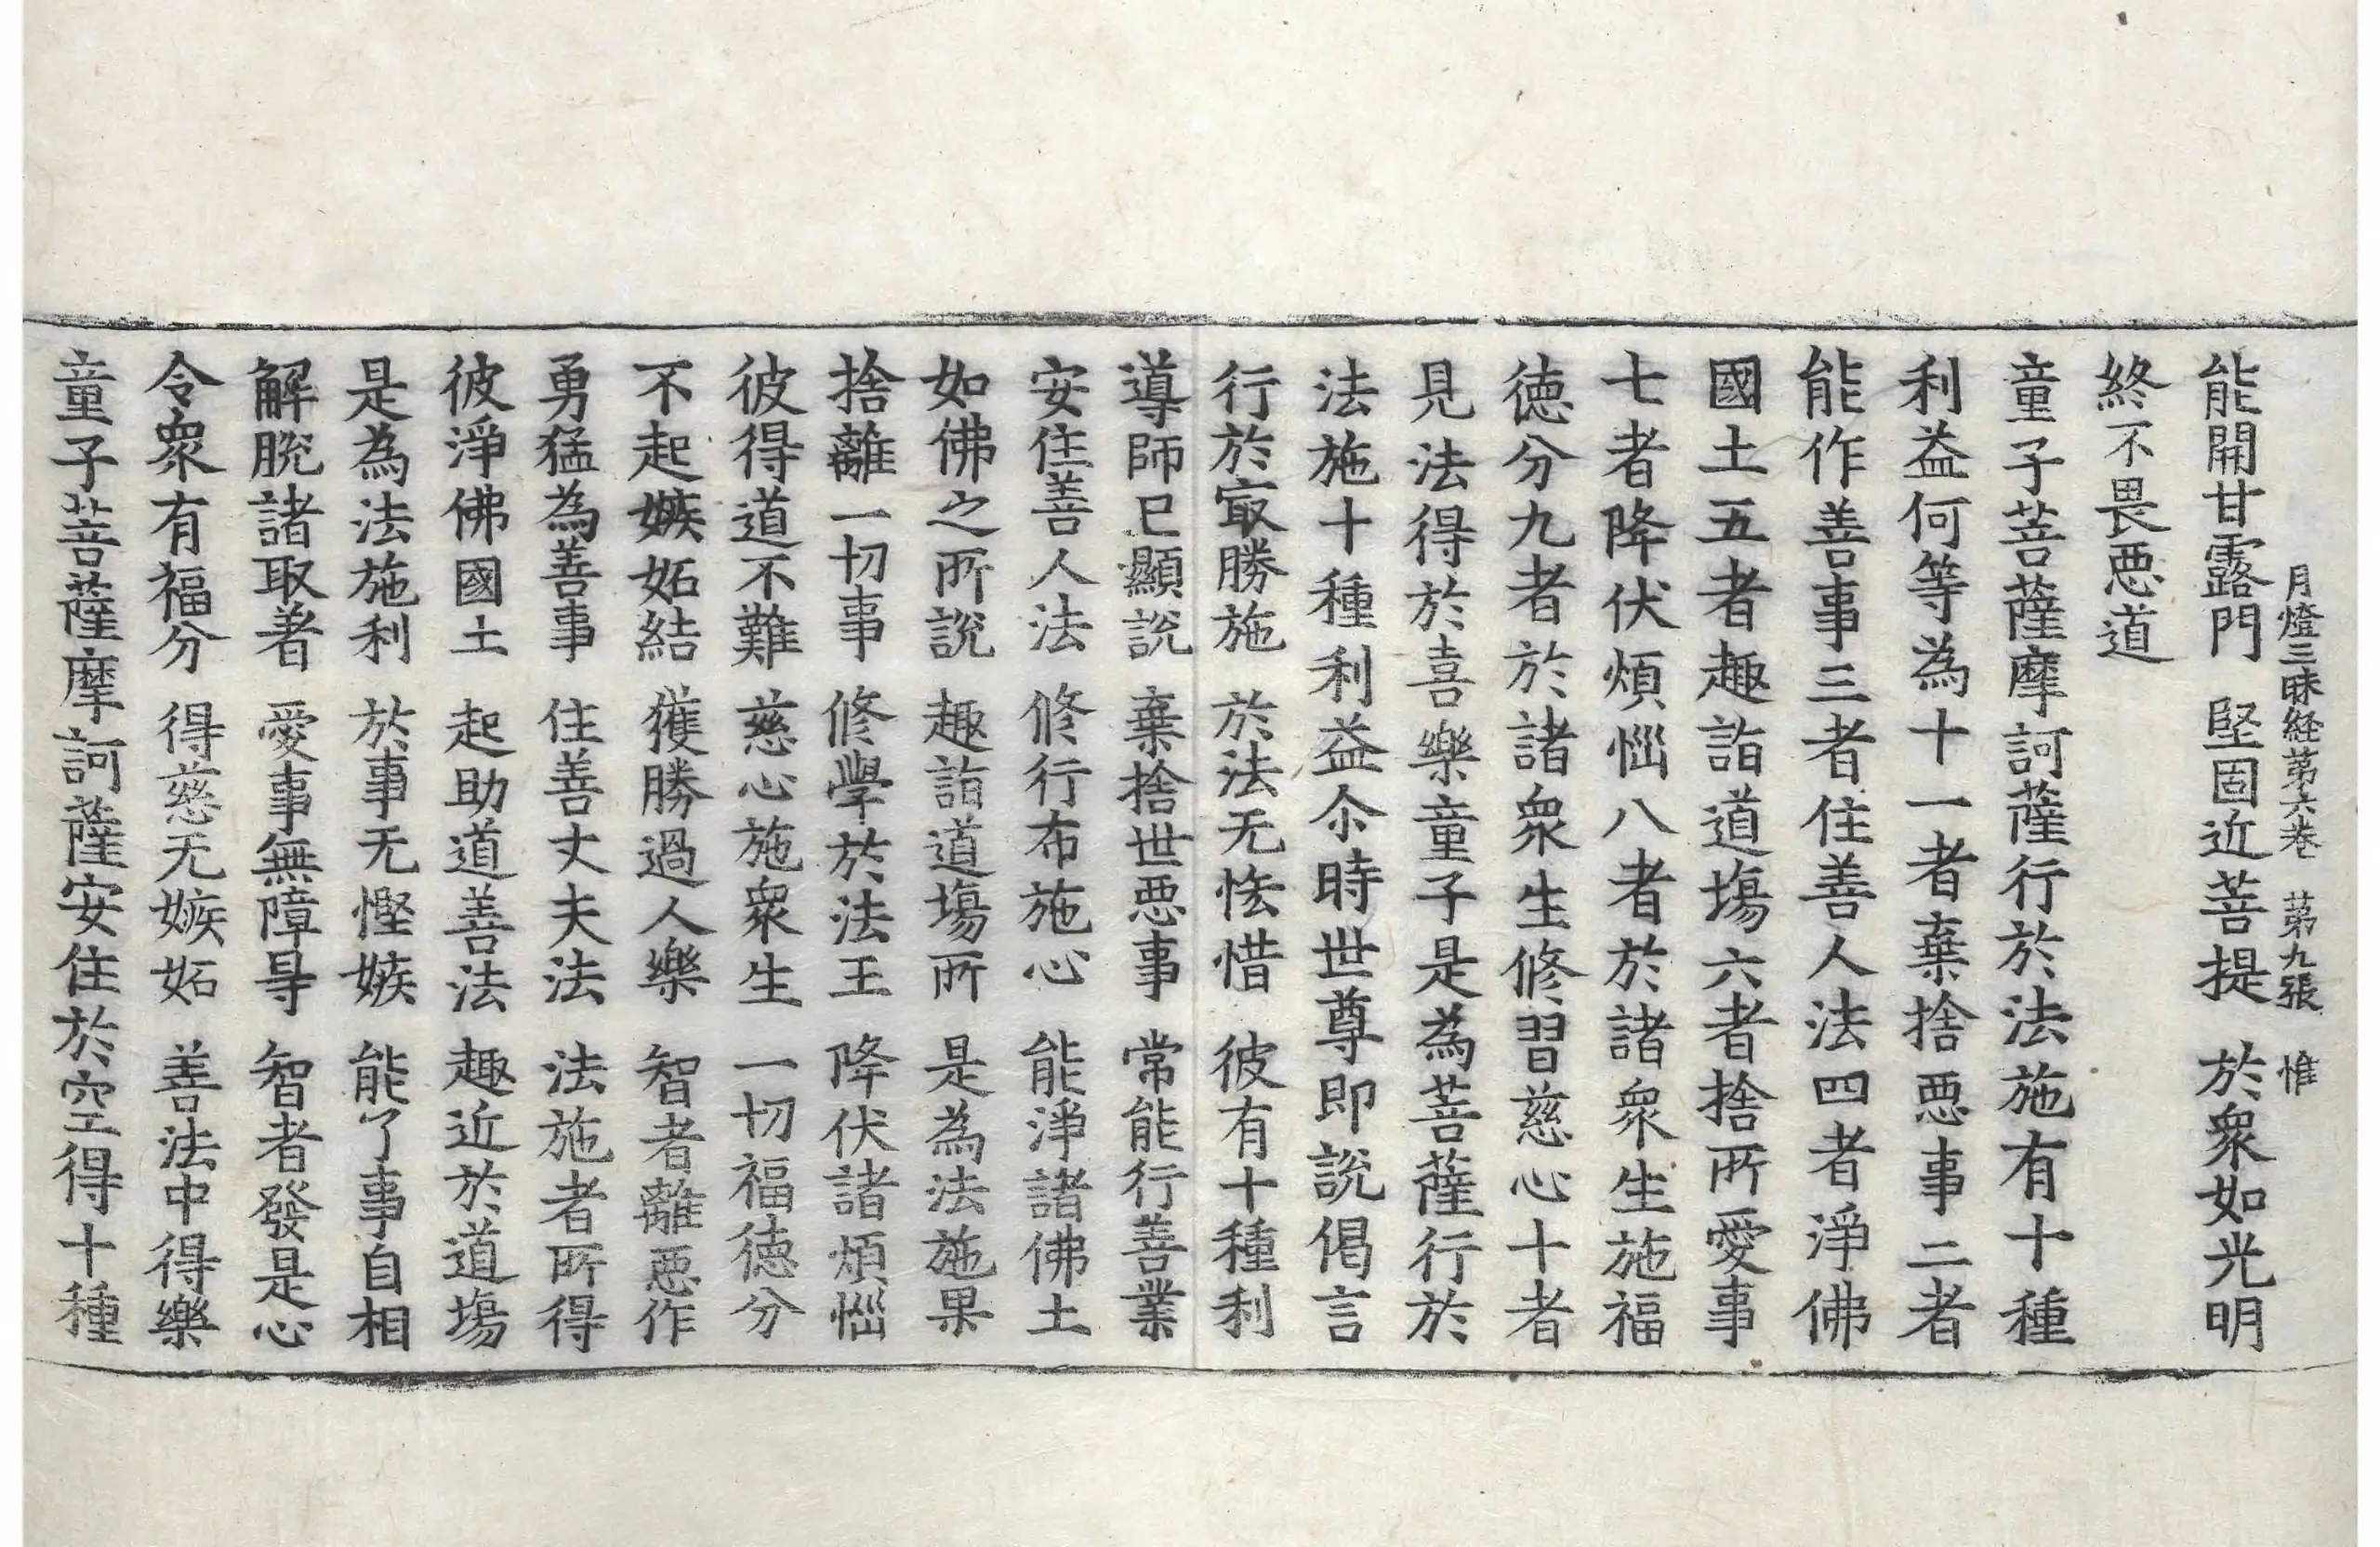 月燈三昧経苐六巻 苐九張 惟
能開甘露門 堅固近菩提 於衆如光明
終不畏悪道
童子菩薩摩訶薩行於法施有十種
利益何等為十一者棄捨悪事二者
能作善事三者住善人法四者淨佛
國土五者趣詣道塲六者捨所愛事
七者降伏煩惱八者於諸衆生施福
徳分九者於諸衆生修習慈心十者
見法得於喜樂童子是為菩薩行於
法施十種利益尒時世尊即説偈言
行於㝡勝施 於法无悋惜 彼有十種利
導師已顯説 棄捨世悪事 常能行善業
安住善人法 修行布施心 能淨諸佛土
如佛之所説 趣詣道塲所 是為法施果
捨離一切事 修學於法王 降伏諸煩惱
彼得道不難 慈心施衆生 一切福徳分
不起嫉妬結 獲勝過人樂 智者離悪作
勇猛為善事 住善丈夫法 法施者所得
彼淨佛國土 起助道善法 趣近於道塲
是為法施利 於事无慳嫉 能了事自相
解脱諸取著 愛事無障㝵 智者發是心
令衆有福分 得慈无嫉妬 善法中得樂
童子菩薩摩訶薩安住於空得十種